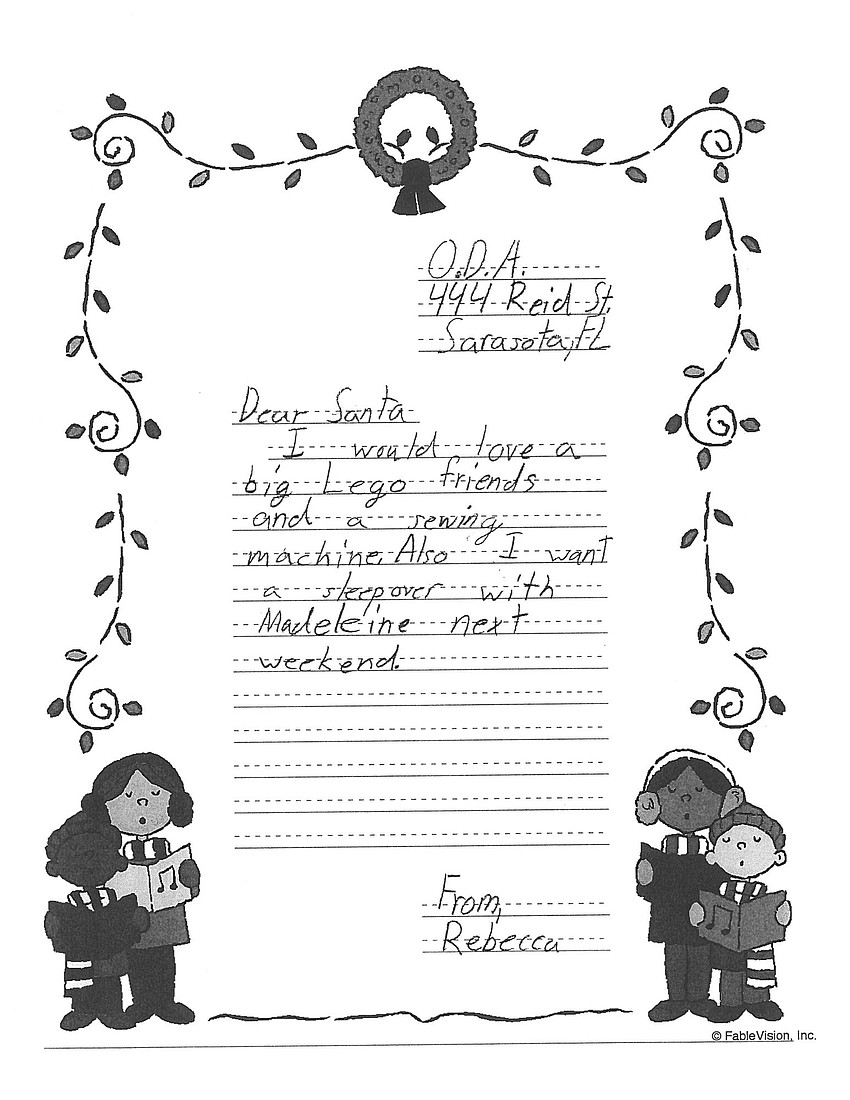 O.D.A.
444 Reid St.
Sarasota, FL
Dear Santa
I would love a
big Lego friends
and a sewing
machine. Also I want
a sleepover with
Madeleine next
weekend.
From,
Rebecca
© FableVision, Inc.